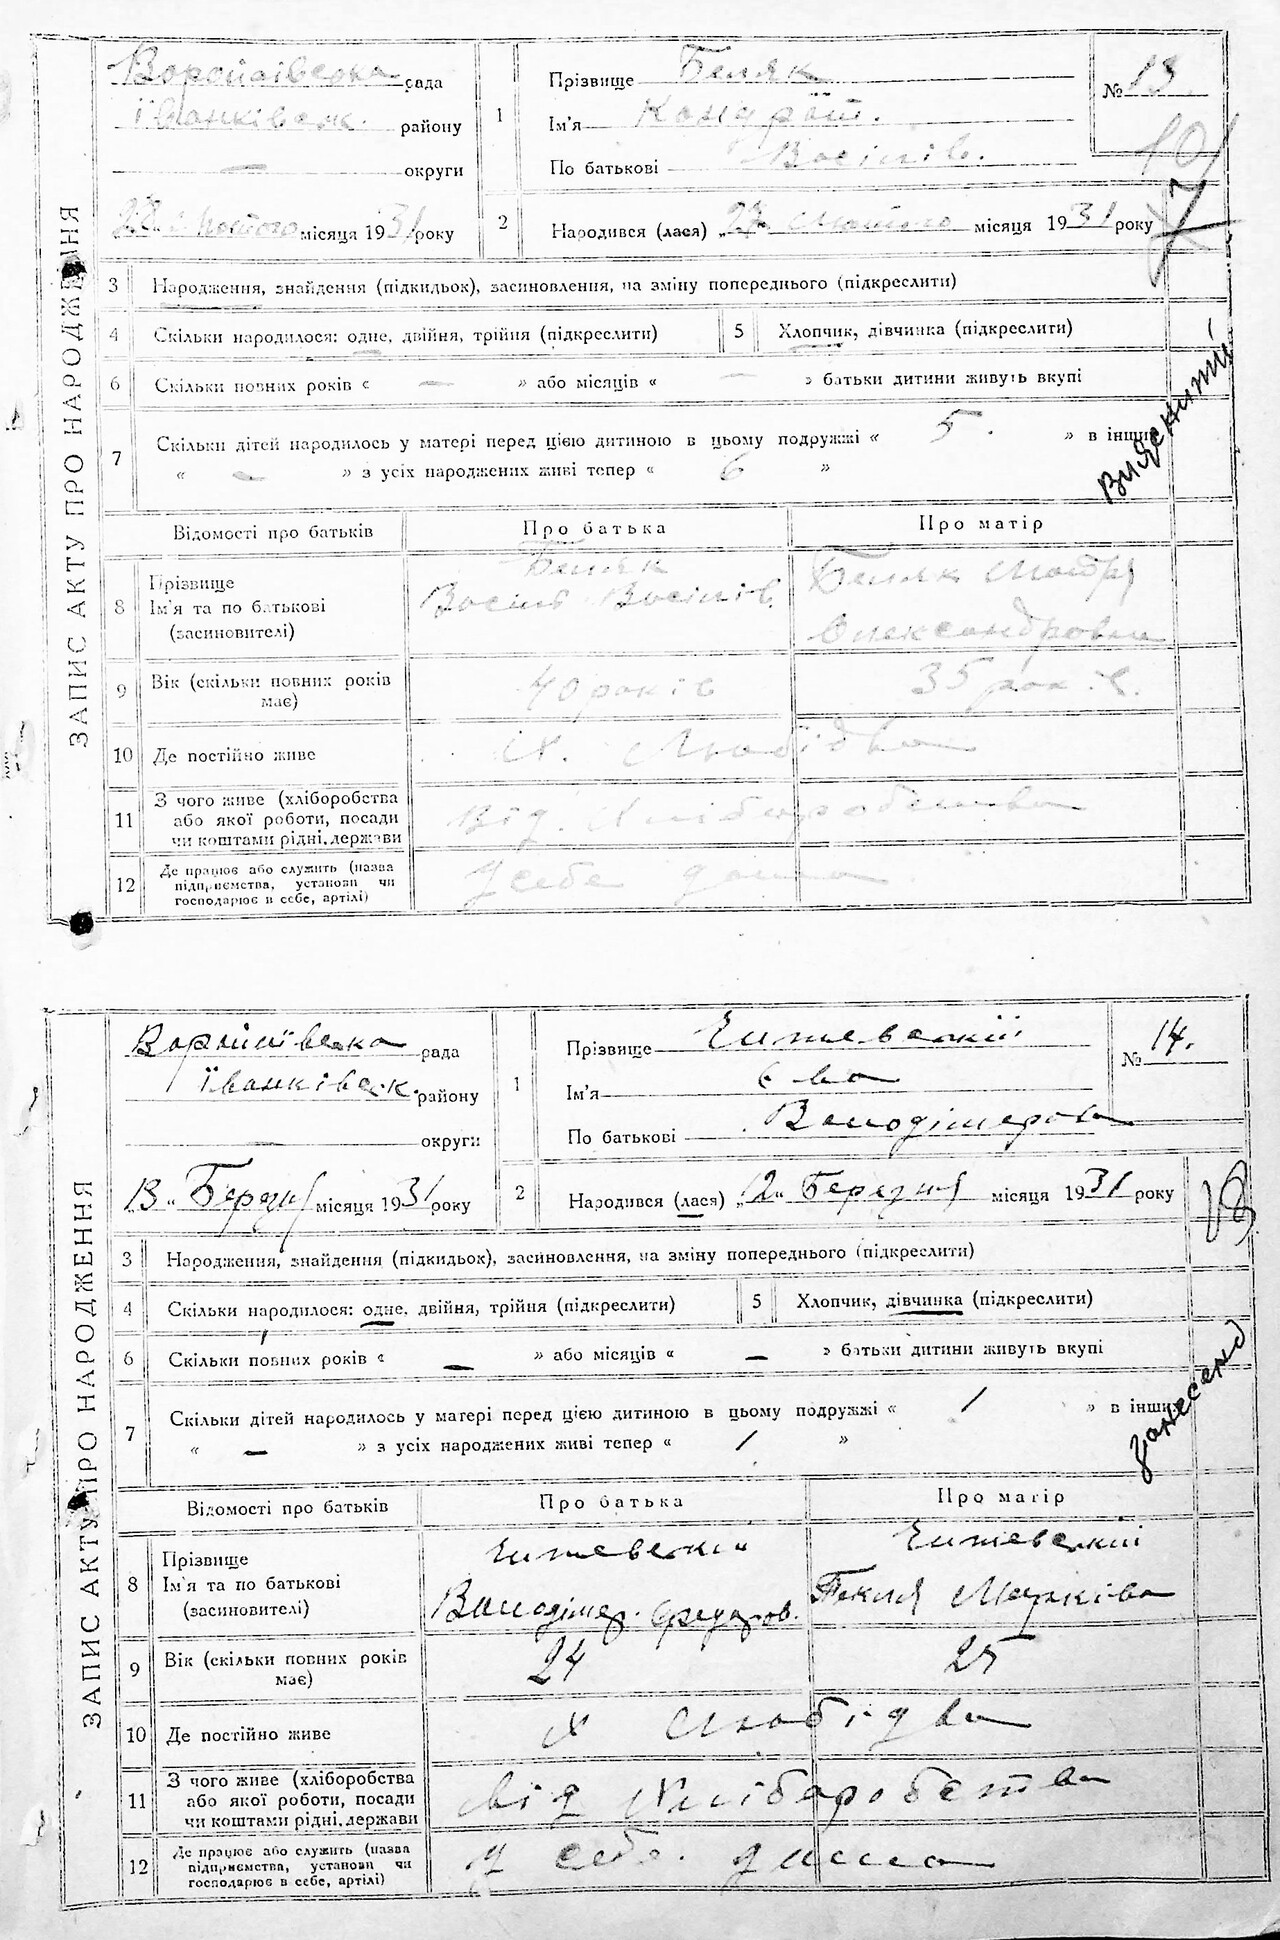 ЗАПИС АКТУ ПРО НАРОДЖЕННЯ
рада
Іванківськ. району
— округи
28 Лютого місяця 1931 року
1 Прізвище Беляк
Ім'я Кондрат.
По батькові Васілів.
№ 13
2 Народився (лася) „27 Лютого місяця 1931 року
3 Народження, знайдення (підкидьок), засиновлення, на зміну попереднього (підкреслити)
4 Скільки народилося: одне, двійня, трійня (підкреслити)
5 Хлопчик, дівчинка (підкреслити)
6 Скільки повних років « — » або місяців « — » батьки дитини живуть вкупі
Вияснити
7 Скільки дітей народилось у матері перед цією дитиною в цьому подружжі « 5. » в інших
« — » з усіх народжених живі тепер « 6 »
Відомості про батьків
Про батька
Про матір
8 Прізвище
Ім'я та по батькові
(засиновителі)
Беляк
Василь Васілів.
Беляк
Олександровна
9 Вік (скільки повних років має)
40 років
35 рок.в.
10 Де постійно живе
х. Любідва
11 З чого живе (хліборобства або якої роботи, посади чи коштами рідні, держави
Від. Хліборобства
12 Де працює або служить (назва підприємства, установи чи господарює в себе, артілі)
У себе дома
ЗАПИС АКТУ ПРО НАРОДЖЕННЯ
рада
Іванківськ. району
— округи
13 „ Березня місяця 1931 року
1 Прізвище
Ім'я Єва
По батькові Володімерова
№ 14.
2 Народився (лася) „12„ Березня місяця 1931 року
3 Народження, знайдення (підкидьок), засиновлення, на зміну попереднього (підкреслити)
4 Скільки народилося: одне, двійня, трійня (підкреслити)
5 Хлопчик, дівчинка (підкреслити)
6 Скільки повних років « — » або місяців « — » батьки дитини живуть вкупі
занесено
7 Скільки дітей народилось у матері перед цією дитиною в цьому подружжі « 1 » в інших
« — » з усіх народжених живі тепер « 1 »
Відомості про батьків
Про батька
Про матір
8 Прізвище
Ім'я та по батькові
(засиновителі)
Володімер.
Текля Марківа
9 Вік (скільки повних років має)
24
25
10 Де постійно живе
х Любідва
11 З чого живе (хліборобства або якої роботи, посади чи коштами рідні, держави
від Хліборобства
12 Де працює або служить (назва підприємства, установи чи господарює в себе, артілі)
У себе. дома